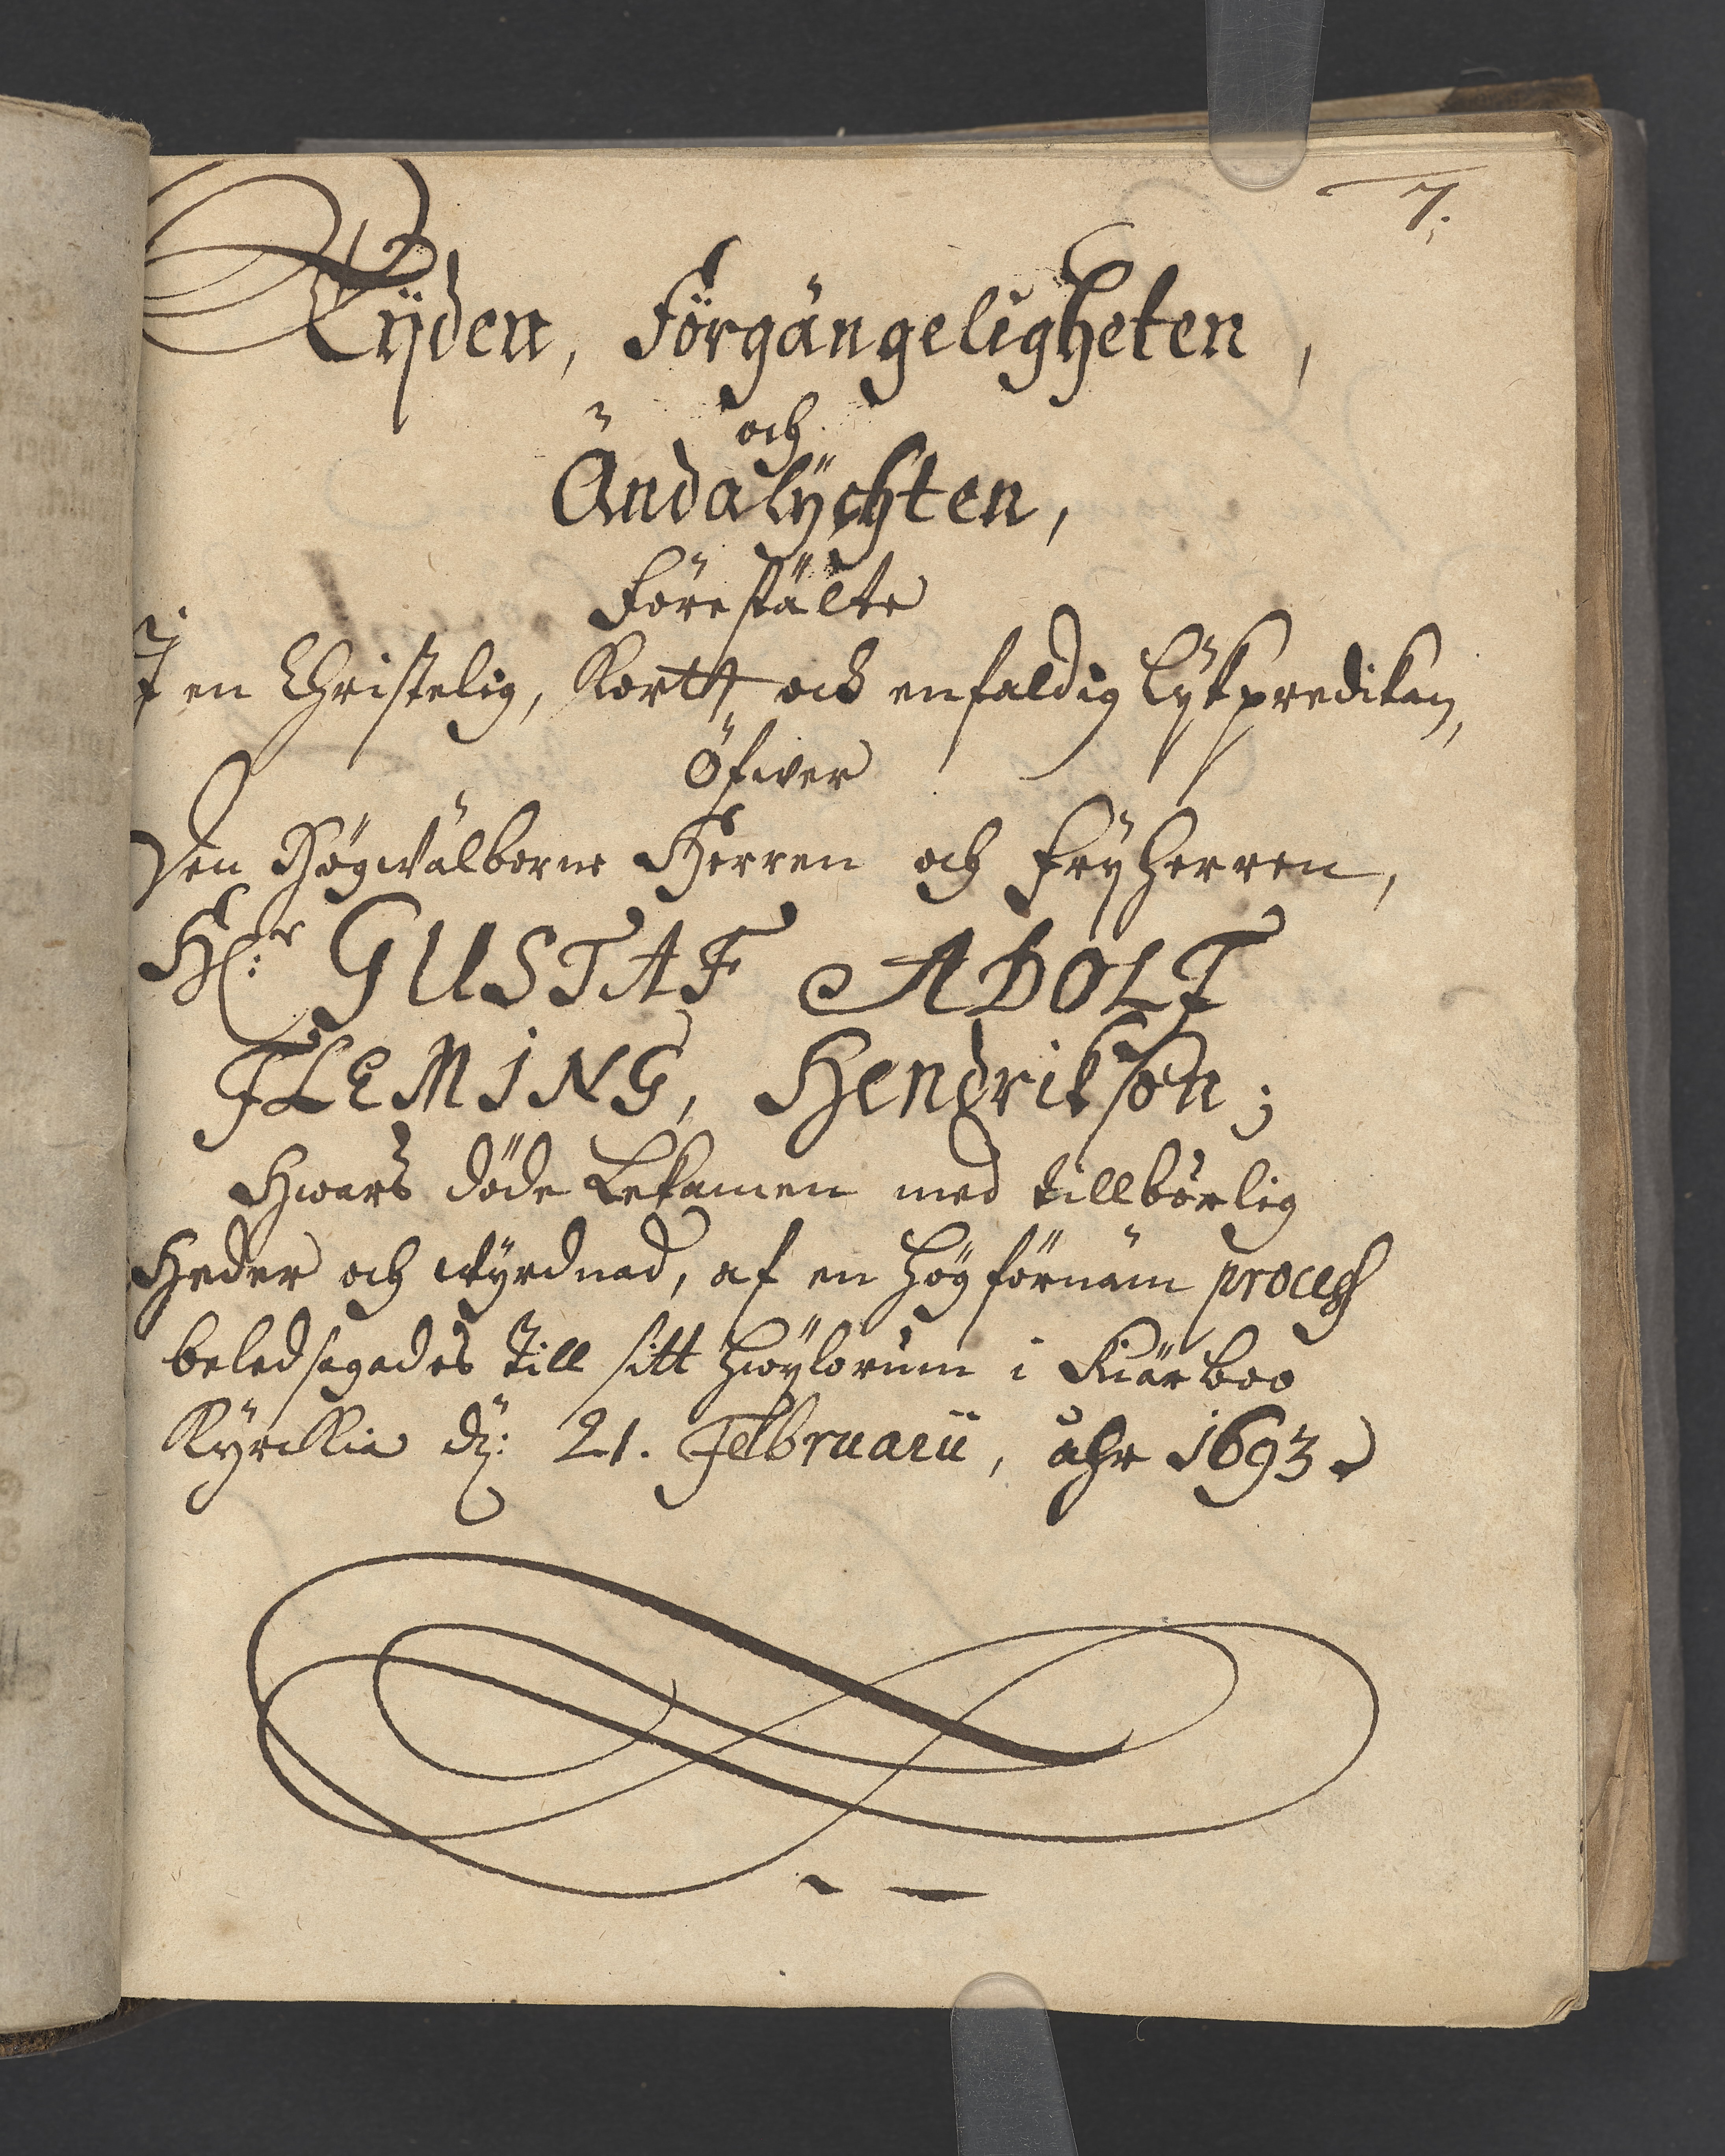 7.
Tijden, Förgängeligheten,
och
Ändalÿchten,
Förestälte
I en Christelig, Kortt och enfaldig Lÿkpredikan,
Öfwer
Den Högwälborne Herren och Frÿherren,
H:r GUSTAF ADOLF
FLEMING, Hendrikson;
Hwars döde Lekamen med tillbörlig
Heder och wÿrdnad, af en högförnäm process
beledsagades till sitt hwÿlorum i Fiärboo
Kÿrckia d: 21. Februarii, åhr 1693.